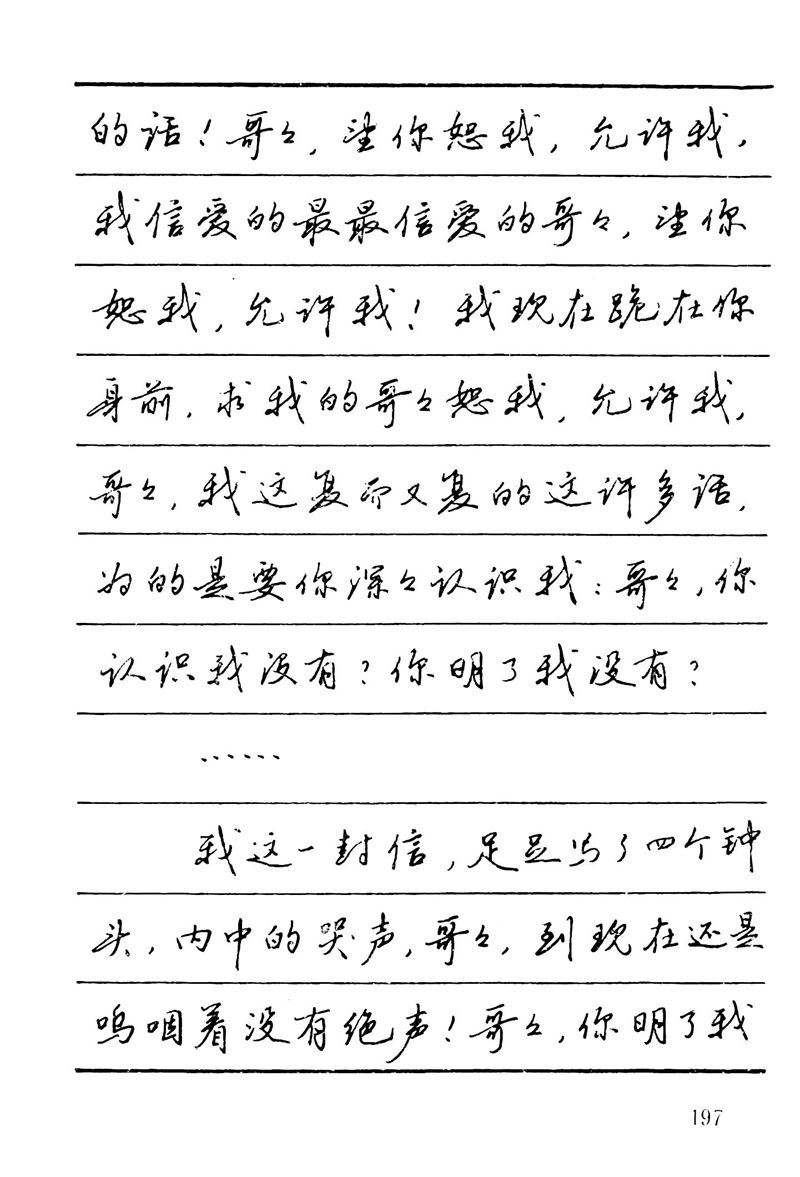 的话！哥々，望你恕我，允许我，
我信爱的最最信爱的哥々，望你
恕我，允许我！我现在跪在你
身前，求我的哥々恕我，允许我，
哥々，我这复而又复的这许多话，
为的是要你深々认识我：哥々，你
认识我没有？你明了我没有？
……
我这一封信，足足写了四个钟
头，内中的哭声，哥々，到现在还是
呜咽着没有绝声！哥々，你明了我
197